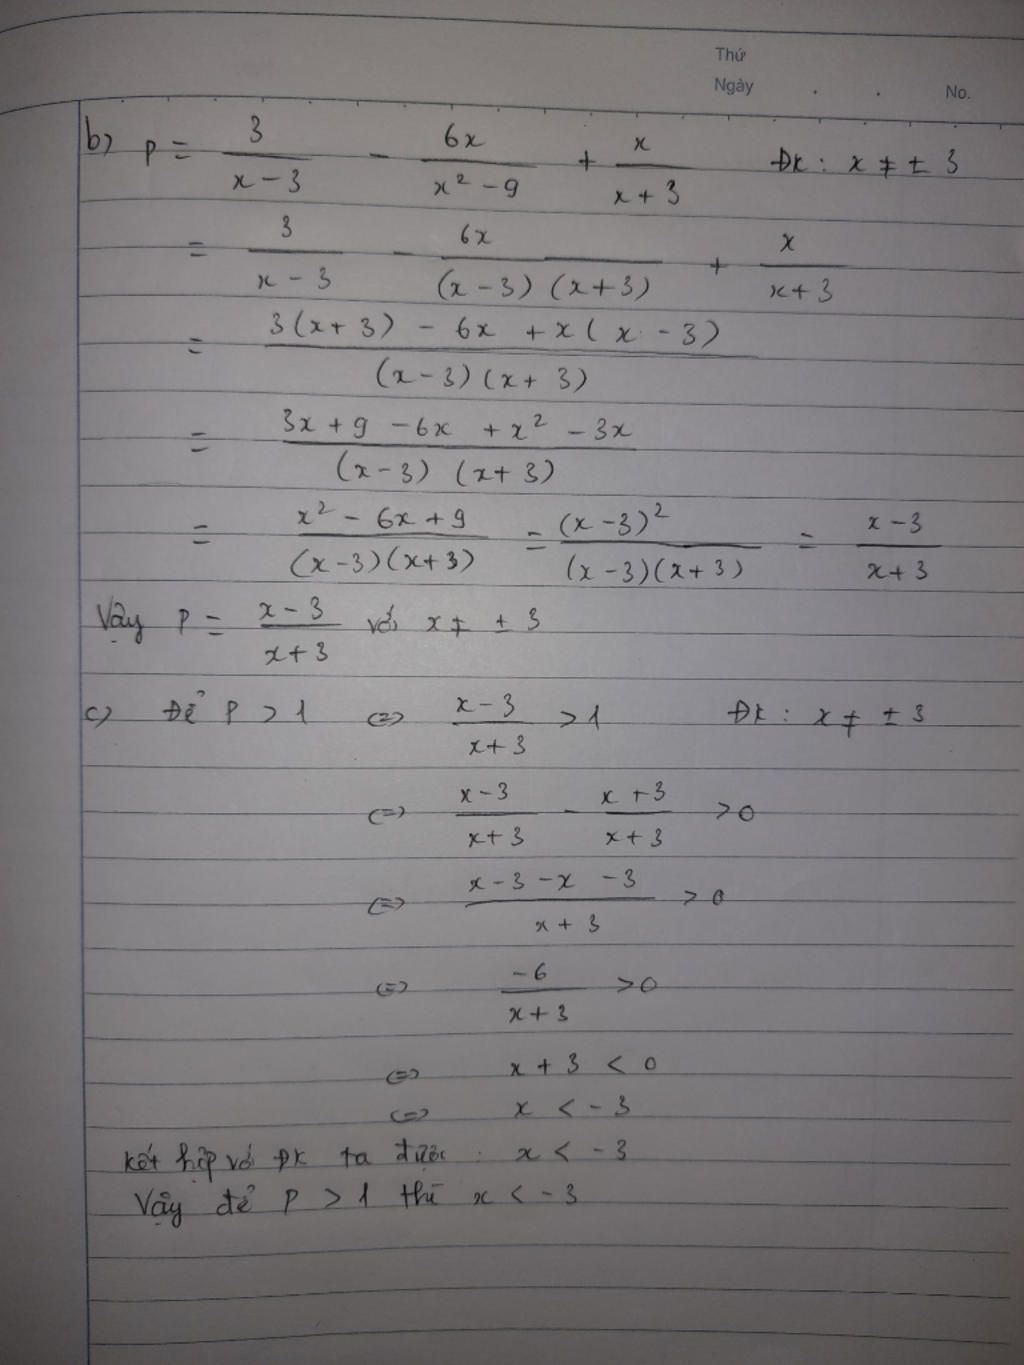 Thứ
Ngày . . No.
b) P = 3/(x - 3) - 6x/(x² - 9) + x/(x + 3) ĐK : x ≠ ± 3
= 3/(x - 3) - 6x/((x - 3)(x + 3)) + x/(x + 3)
= (3(x + 3) - 6x + x(x - 3))/((x - 3)(x + 3))
= (3x + 9 - 6x + x² - 3x)/((x - 3)(x + 3))
= (x² - 6x + 9)/((x - 3)(x + 3)) = (x - 3)²/((x - 3)(x + 3)) = (x - 3)/(x + 3)
Vậy P = (x - 3)/(x + 3) với x ≠ ± 3
c) Để P > 1 <=> (x - 3)/(x + 3) > 1 ĐK : x ≠ ± 3
<=> (x - 3)/(x + 3) - (x + 3)/(x + 3) > 0
<=> (x - 3 - x - 3)/(x + 3) > 0
<=> -6/(x + 3) > 0
<=> x + 3 < 0
<=> x < - 3
kết hợp với ĐK ta được : x < - 3
Vậy để P > 1 thì x < - 3